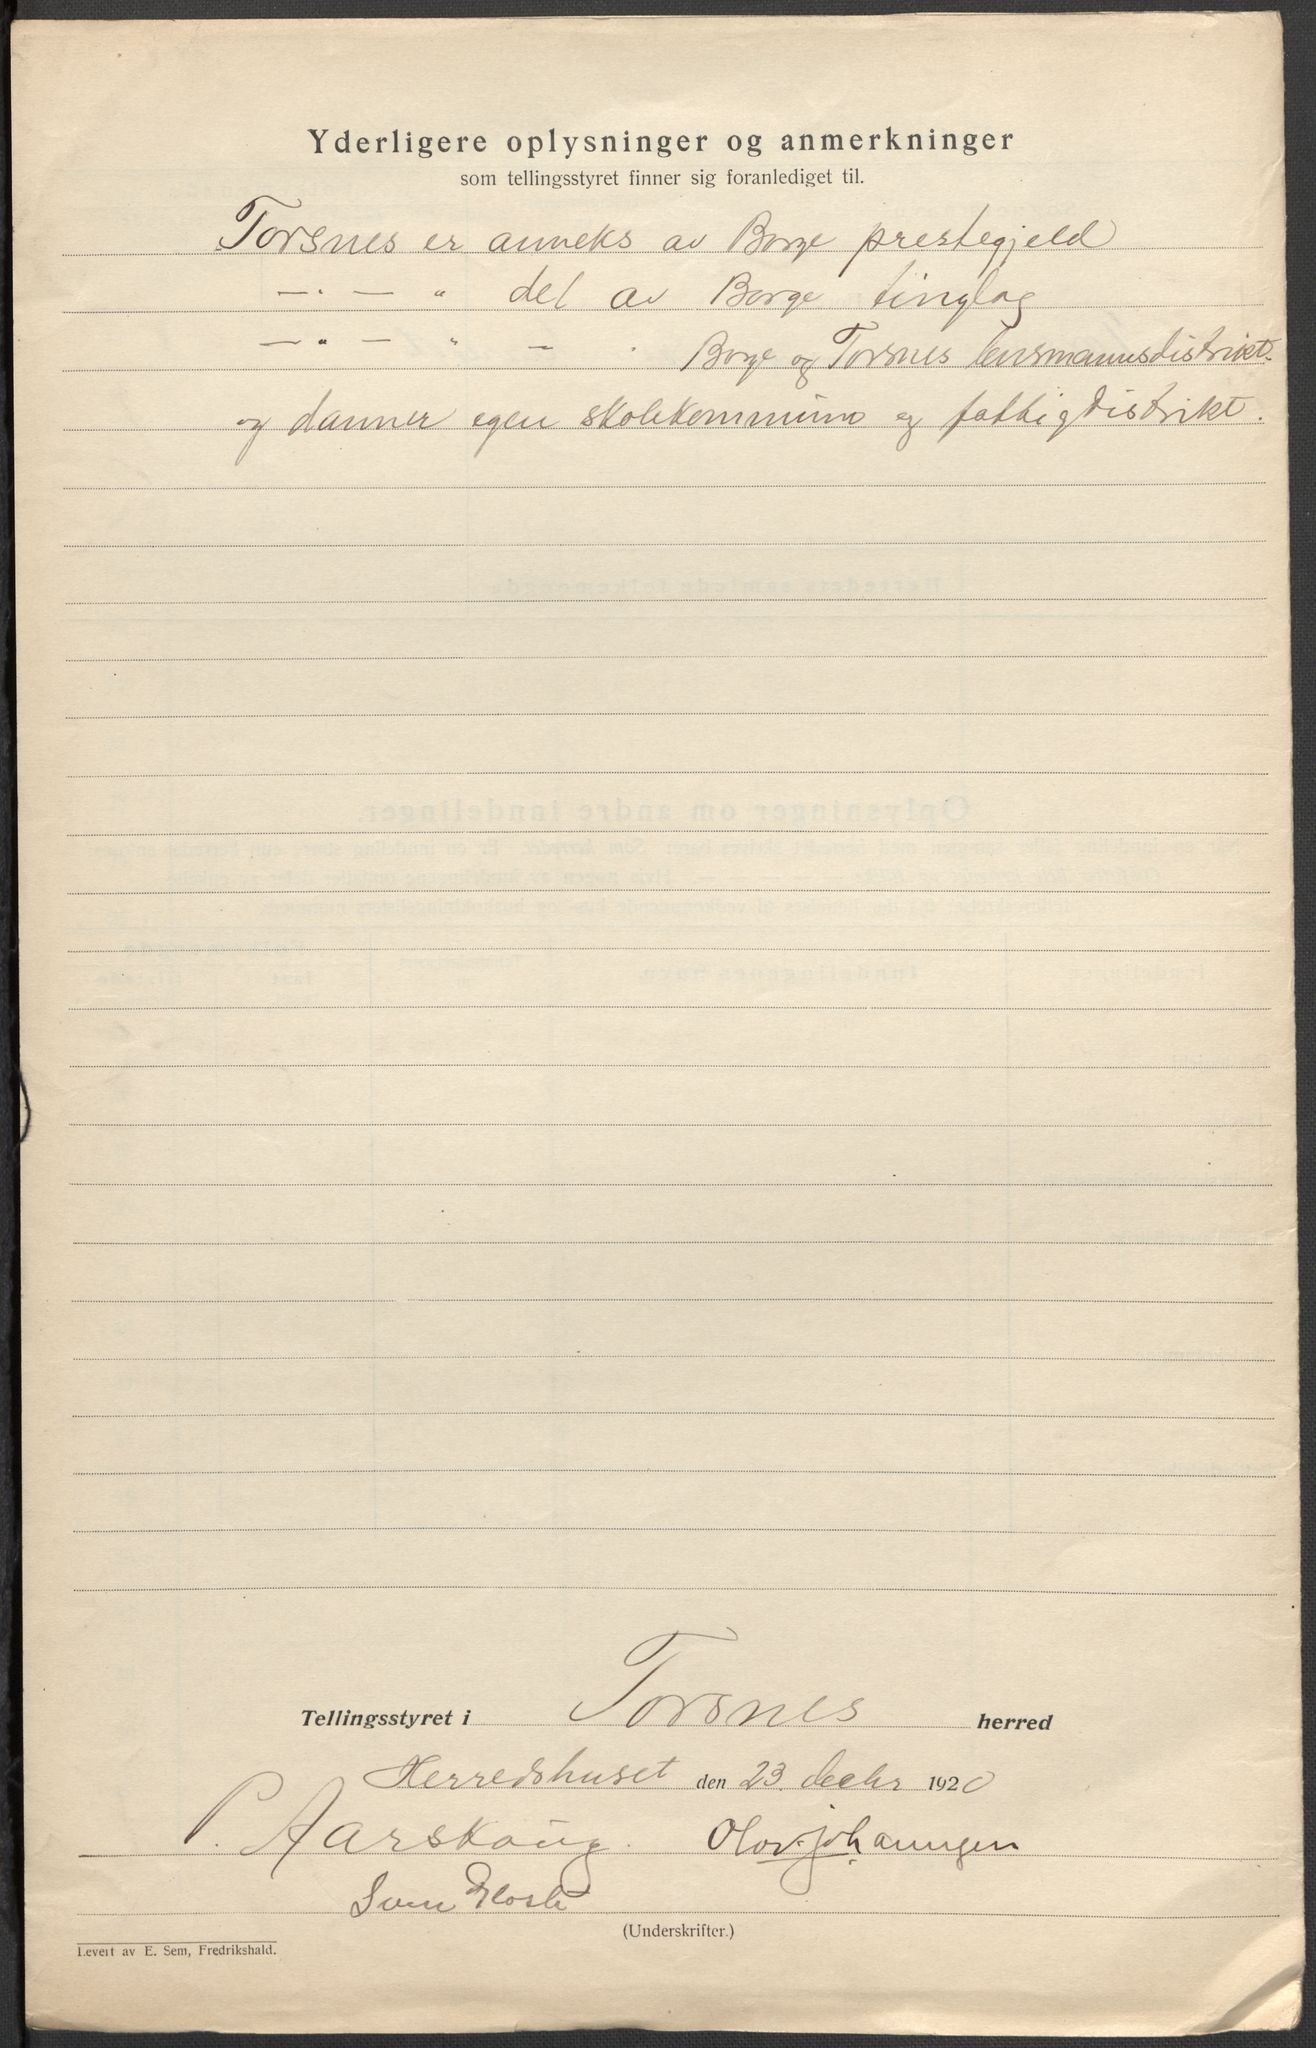 Yderligere oplysninger og anmerkninger
som tellingsstyret finner sig foranlediget til.
Torsnes er anneks av Borge prestegjeld
—"— " del av Borge tinglag
—"— " — " Borge og Torsnes lensmannsdistrikt.
og danner egen skolekommune og fattigdistrikt.
Tellingsstyret i Torsnes herred
Herredshuset den 23. decbr 1920
P. Aarskoug. Olav Johannsen
(Underskrifter.)
Levert av E. Sem, Fredrikshald.